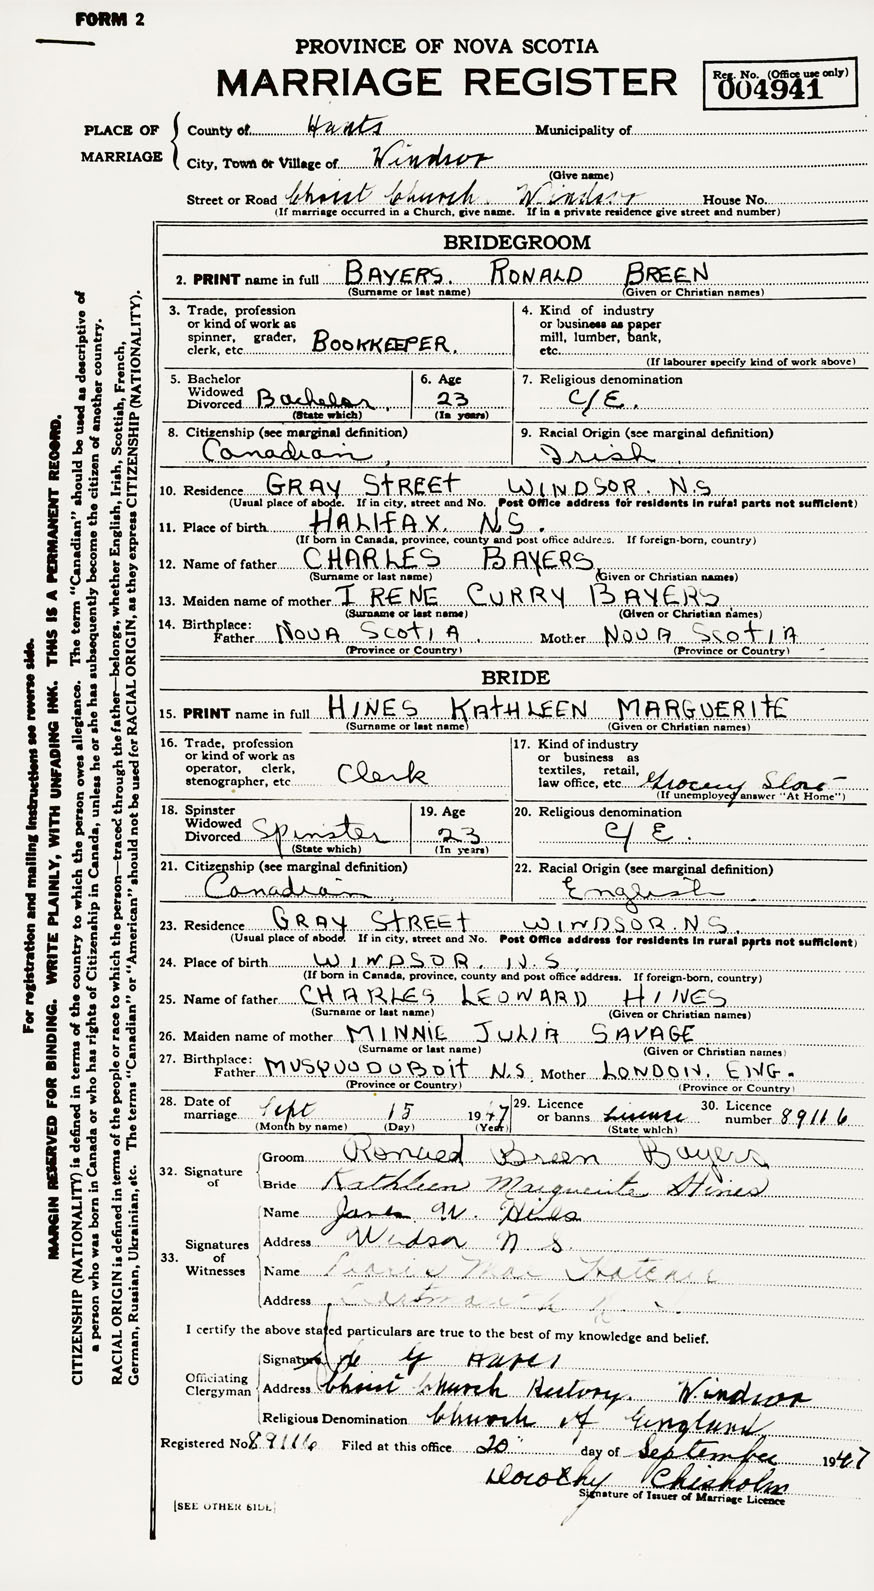 FORM 2
PROVINCE OF NOVA SCOTIA
MARRIAGE REGISTER
Reg. No. (Office use only)
004941
PLACE OF MARRIAGE
County of Hants Municipality of
City, Town or Village of Windsor
(Give name)
Street or Road Christ Church. Windsor House No.
(If marriage occurred in a Church, give name. If in a private residence give street and number)
BRIDEGROOM
2. PRINT name in full BAYERS. RONALD BREEN
(Surname or last name) (Given or Christian names)
3. Trade, profession or kind of work as spinner, grader, clerk, etc. BOOKKEEPER.
4. Kind of industry or business as paper mill, lumber, bank, etc.
(If labourer specify kind of work above)
5. Bachelor Widowed Divorced Bachelor.
(State which)
6. Age 23
(In years)
7. Religious denomination C/E.
8. Citizenship (see marginal definition)
Canadian
9. Racial Origin (see marginal definition)
Irish
10. Residence GRAY STREET WINDSOR. N.S
(Usual place of abode. If in city, street and No. Post Office address for residents in rural parts not sufficient)
11. Place of birth HALIFAX. N.S.
(If born in Canada, province, county and post office address. If foreign-born, country)
12. Name of father CHARLES BAYERS
(Surname or last name) (Given or Christian names)
13. Maiden name of mother IRENE CURRY BAYERS
(Surname or last name) (Given or Christian names)
14. Birthplace: Father NOVA SCOTIA. Mother NOVA SCOTIA
(Province or Country) (Province or Country)
BRIDE
15. PRINT name in full HINES KATHLEEN MARGUERITE
(Surname or last name) (Given or Christian names)
16. Trade, profession or kind of work as operator, clerk, stenographer, etc Clerk
17. Kind of industry or business as textiles, retail, law office, etc. Grocery Store
(If unemployed answer "At Home")
18. Spinster Widowed Divorced Spinster
(State which)
19. Age 23
(In years)
20. Religious denomination C/E.
21. Citizenship (see marginal definition)
Canadian
22. Racial Origin (see marginal definition)
English
23. Residence GRAY STREET WINDSOR. N.S.
(Usual place of abode. If in city, street and No. Post Office address for residents in rural parts not sufficient)
24. Place of birth WINDSOR. N.S
(If born in Canada, province, county and post office address. If foreign-born, country)
25. Name of father CHARLES LEONARD HINES
(Surname or last name) (Given or Christian names)
26. Maiden name of mother MINNIE JULIA SAVAGE
(Surname or last name) (Given or Christian names)
27. Birthplace: Father MUSQUODUBOIT N.S Mother LONDON. ENG.
(Province or Country) (Province or Country)
28. Date of marriage Sept 15 1947
(Month by name) (Day) (Year)
29. Licence or banns License
(State which)
30. Licence number 89116
32. Signature of
Groom Ronald Breen Bayers
Bride Kathleen Marguerite Hines
33. Signatures of Witnesses
Name W.
Address Windsor N S.
Name Mae
Address
I certify the above stated particulars are true to the best of my knowledge and belief.
Officiating Clergyman
Signature
Address Christ Church Rectory. Windsor
Religious Denomination Church of England
Registered No 89116 Filed at this office 20" day of September 1947
Dorothy Chisholm
Signature of Issuer of Marriage Licence
[SEE OTHER SIDE]
For registration and mailing instructions see reverse side.
MARGIN RESERVED FOR BINDING. WRITE PLAINLY, WITH UNFADING INK. THIS IS A PERMANENT RECORD.
CITIZENSHIP (NATIONALITY) is defined in terms of the country to which the person owes allegiance. The term "Canadian" should be used as descriptive of
a person who was born in Canada or who has rights of Citizenship in Canada, unless he or she has subsequently become the citizen of another country.
RACIAL ORIGIN is defined in terms of the people or race to which the person—traced through the father—belongs, whether English, Irish, Scottish, French,
German, Russian, Ukrainian, etc. The terms "Canadian" or "American" should not be used for RACIAL ORIGIN, as they express CITIZENSHIP (NATIONALITY).